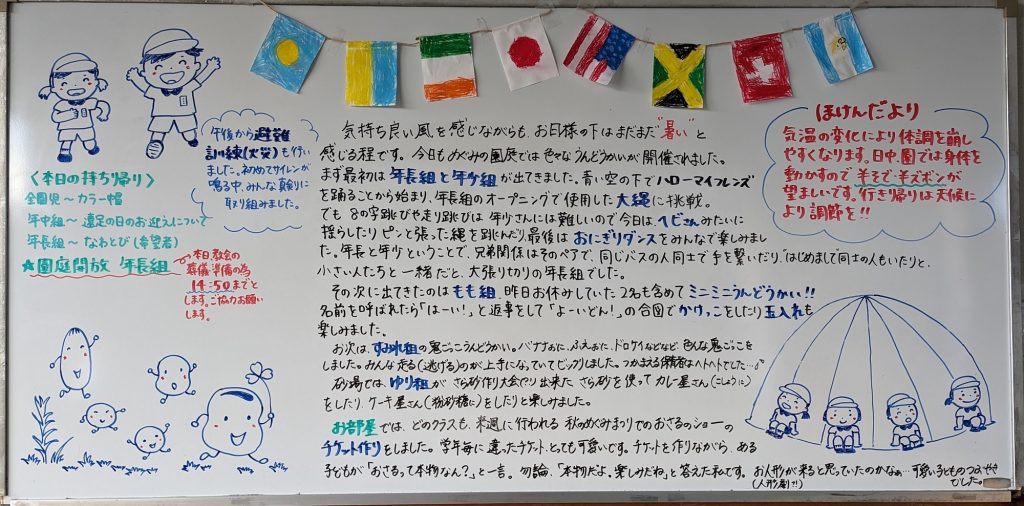 午後から避難
訓練(火災)も行い
ました。初めてサイレンが
鳴る中、みんな真剣に
取り組みました。
〈本日の持ち帰り〉
全園児〜カラー帽
年中組〜遠足の日のお迎えについて
年長組〜なわとび(希望者)
★園庭開放 年長組
本日教会の
葬儀準備の為
14:50までと
します。ご協力お願い
します。
気持ち良い風を感じながらも、お日様の下はまだまだ"暑い"と
感じる程です。今日もめぐみの園庭では色々なうんどうかいが開催されました。
まず最初は年長組と年少組が出てきました。青い空の下でハローマイフレンズ
を踊ることから始まり、年長組のオープニングで使用した大縄に挑戦。
でも8の字跳びや走り跳びは年少さんには難しいので今日は、へびさんみたいに
揺らしたりピンと張った縄を跳んだり、最後はおにぎりダンスをみんなで楽しみまし
た。年長と年少ということで、兄弟関係はそのペアで、同じバスの人同士で手を繋いだり、はじめまして同士の人もいたりと、
小さい人たちと一緒だと、大張りきりの年長組でした。
その次に出てきたのはもも組。昨日お休みしていた2名も含めてミニミニうんどうかい!!
名前を呼ばれたら「はーい!」と返事をして「よーいどん!」の合図でかけっこをしたり玉入れも
楽しみました。
お次は、すみれ組の鬼ごっこうんどうかい。バナナおに、ふえおに、ドロケイなどなど、色んな鬼ごっこを
しました。みんな走る(逃げる)のが上手になっていてビックリしました。つかまえる保育者はヘトヘトでした…♪
砂場では、ゆり組がさら砂作り大会?!出来たさら砂を使ってカレー屋さん(こしょうに)
をしたり、ケーキ屋さん(粉砂糖に)をしたりと楽しみました。
お部屋では、どのクラスも、来週に行われる秋のめぐみまつりでのおさるのショーの
チケット作りをしました。学年毎に違ったチケット、とても可愛いです。チケットを作りながら、ある
子どもが「おさるって本物なん?」と一言。勿論、「本物だよ。楽しみだね」と答えた私です。お人形が来ると思っていたのかなぁ…可愛い子どものつぶやき
(人形劇?!)
でした。
ほけんだより
気温の変化により体調を崩し
やすくなります。日中、園では身体を
動かすので半そで・半ズボンが
望ましいです。行き帰りは天候に
より調節を!!